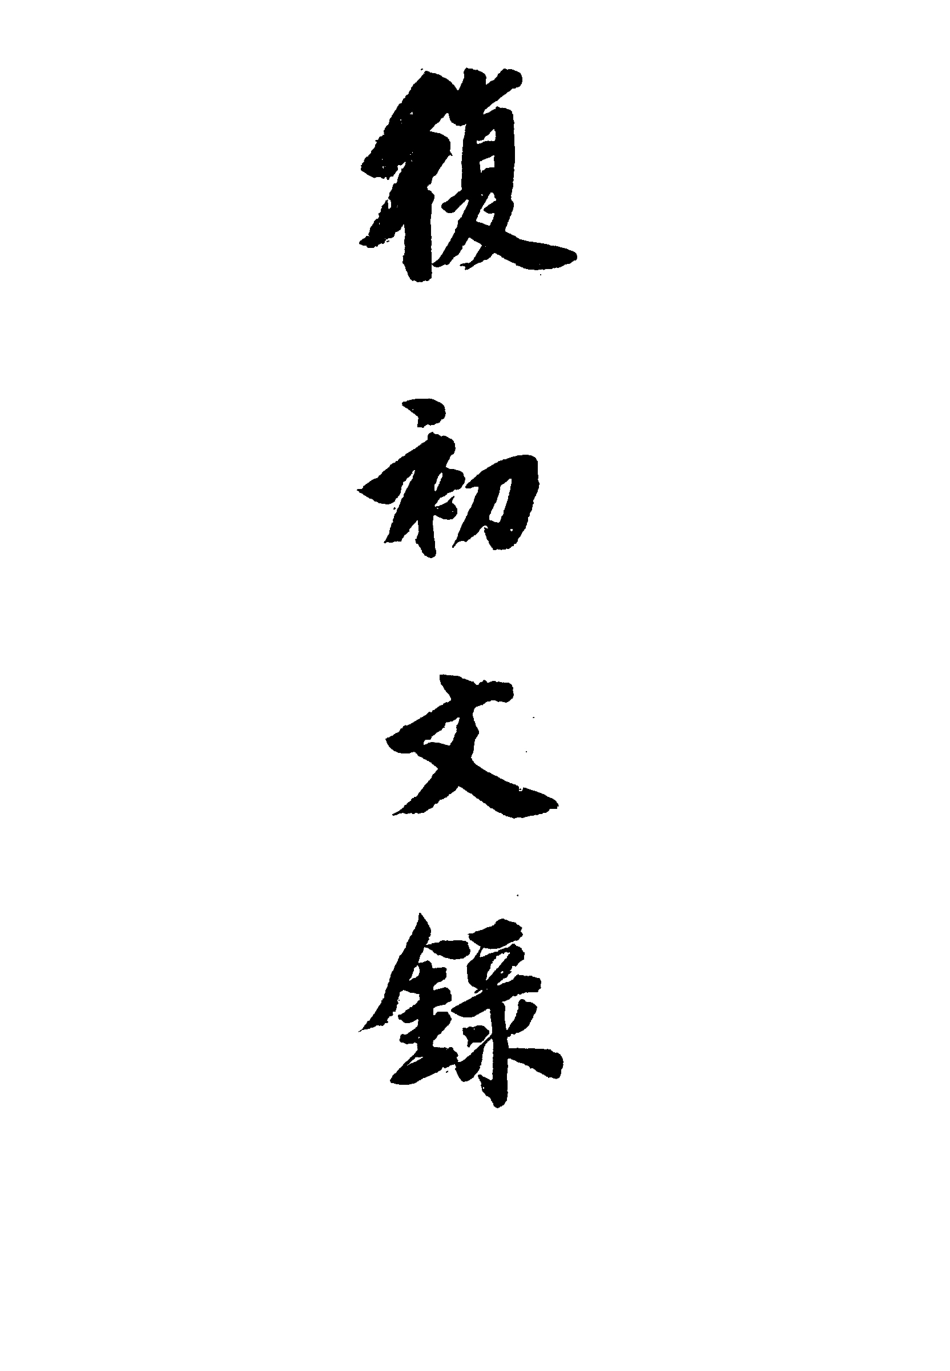 復初文錄